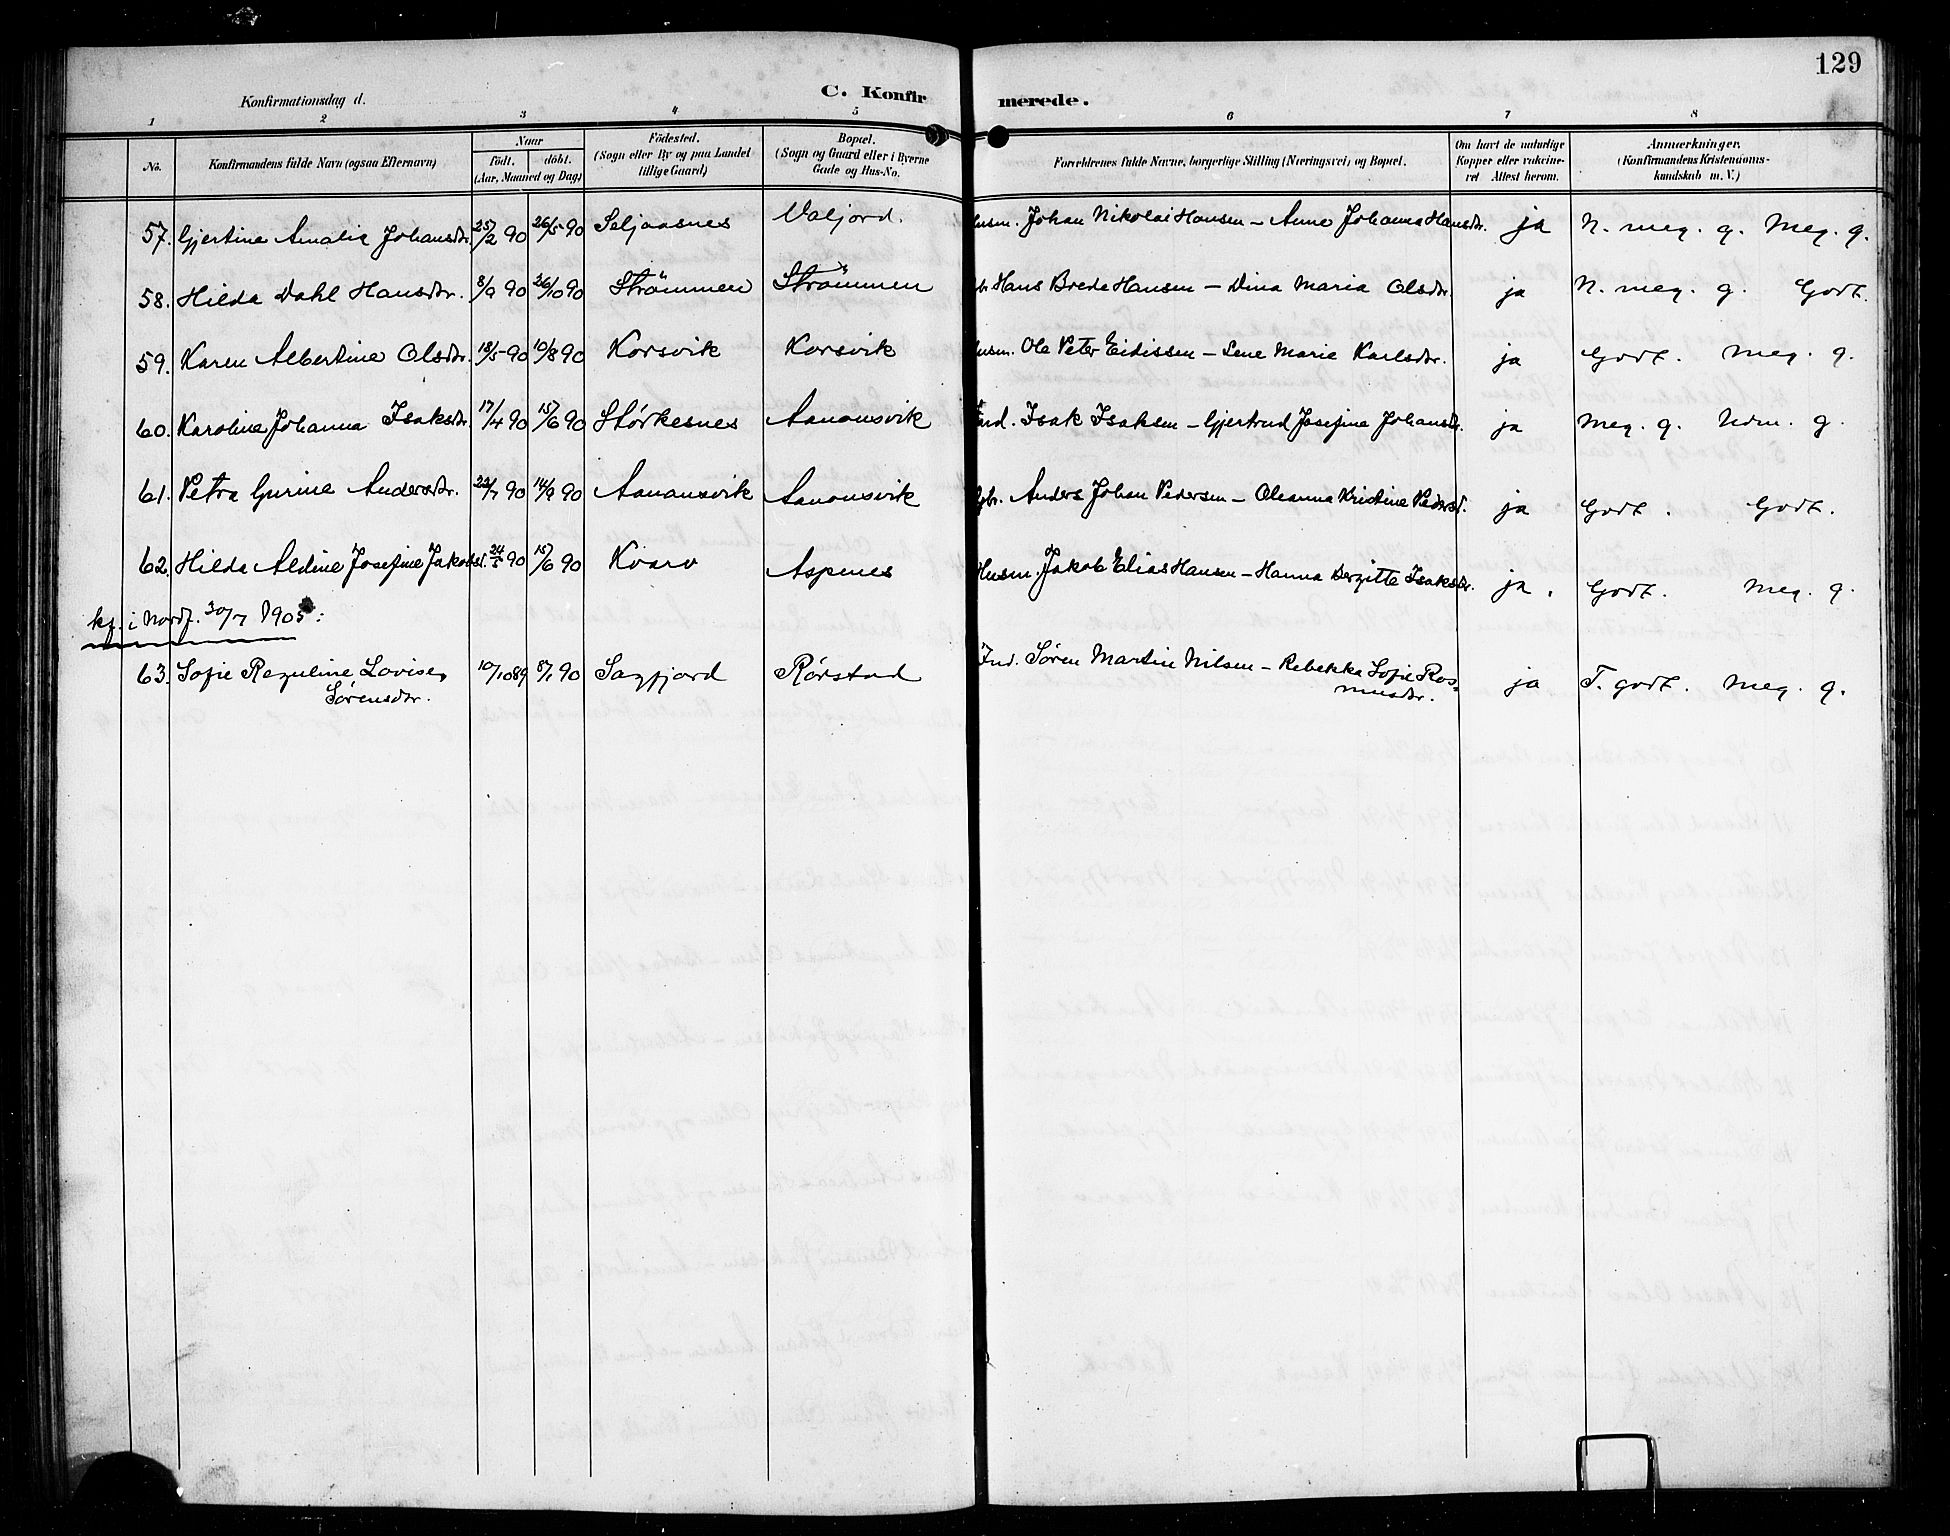 129
Konfirmationsdag d.
C. Konfir merede.
1 2 3 4 5 6 7 8
No. Konfirmandens fulde Navn (ogsaa Efternavn) Naar født. døbt. (Aar, Maaned og Dag) Fødested. (Sogn eller By og paa Landet tillige Gaard) Bopæl. (Sogn og Gaard eller i Byerne Gade og Hus-No. Forældrenes fulde Navne, borgerlige Stilling (Næringsvei) og Bopæl. Om havt de naturlige Kopper eller vakcineret Attest herom. Anmærkninger. (Konfirmandens Kristendomskundskab m. V.)
57. Gjertine Amalie Johansdr. 25/2 90 26/5 90 Seljaasnes Valjord. Husm. Johan Nikolai Hansen – Anne Johanna Hansdr. ja N. meg. g. Meg. g.
58. Hilda Dahl Hansdtr. 8/9 90 26/10 90 Strømmen Strømmen Hans Brede Hansen – Dina Maria Olsdr. ja N. meg. g. Godt.
59. Karen Albertine Olsdtr. 18/5 90 10/8 90 Korsvik Korsvik Husm. Ole Peter Eidissen – Lene Marie Karlsdtr. ja Godt. Meg. g.
60. Karoline Johanna Isaksdr. 17/4 90 15/6 90 Størkesnes Aanonsvik Isak Isaksen – Gjertrud Josefine Johansdr. ja Meg. g. Udm. g.
61. Petra Gurine Andersdtr. 22/7 90 14/9 90 Aanonsvik Aanonsvik Anders Johan Pedersen – Oleanna Kristine Pedersd. ja Godt. Godt.
62. Hilda Aldine Josefine Jakobsd. 24/5 90 15/6 90 Kvarv Aspenes Husm. Jakob Elias Hansen – Hanna Bergitte Isaksdr. ja. Godt. Meg. g.
kf. i Nordf. 30/7 1905:
63. Sofie Reguline Lovise 10/10 89 8/1 90 Sagfjord Rørstad Ind. Søren Martin Nilsen – Rebekka Sofie Ras- ja T. godt. Meg. g.
Sørensdtr. musdtr.